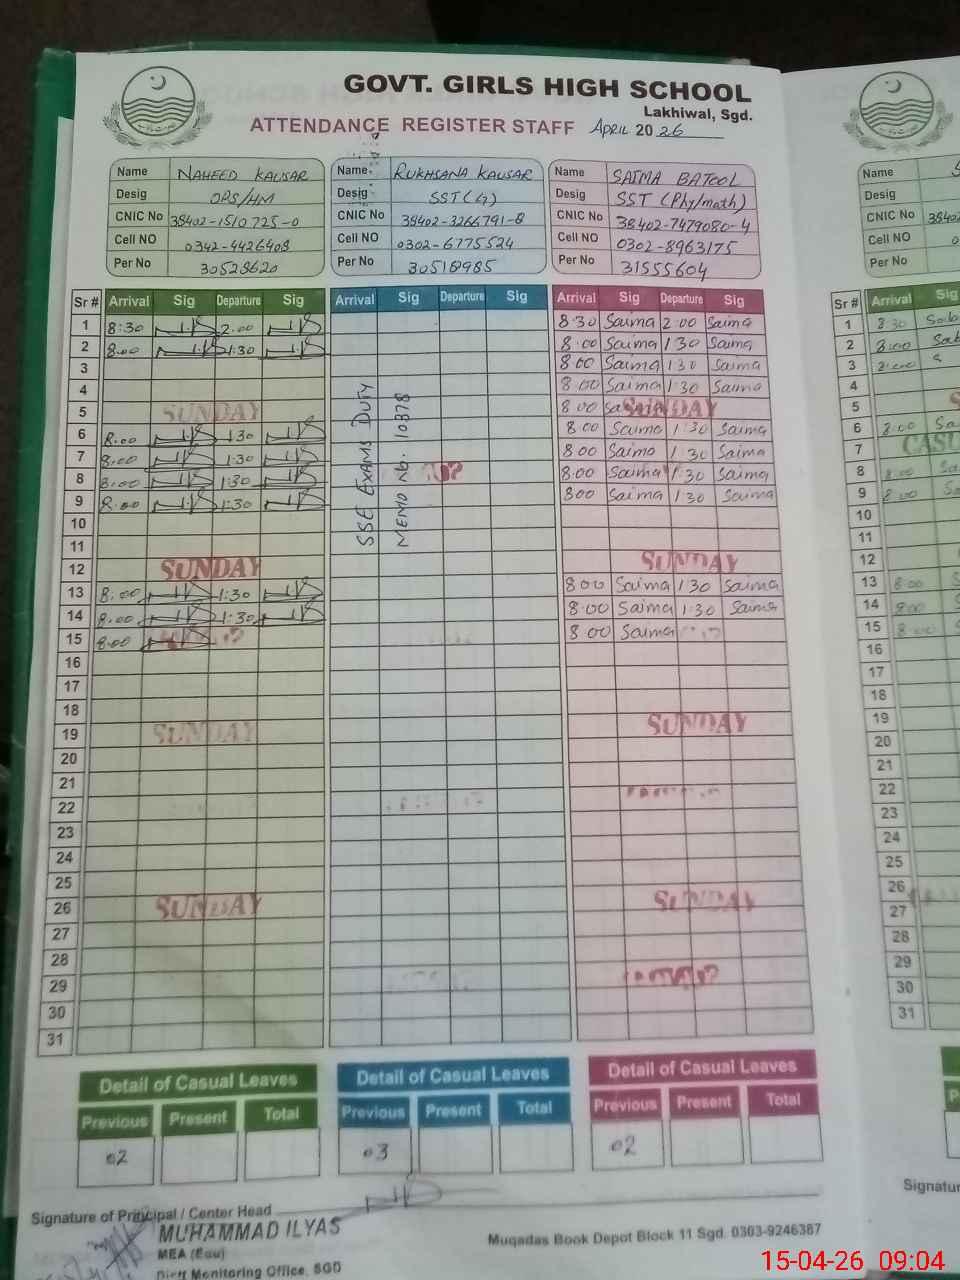 GOVT. GIRLS HIGH SCHOOL
Lakhiwal, Sgd.
ATTENDANCE REGISTER STAFF APRIL 2026
Name NAHEED KAUSAR
Desig OPS/HM
CNIC No 38402-1510725-0
Cell NO 0342-4426408
Per No 30528620
Name RUKHSANA KAUSAR
Desig SST(G)
CNIC No 38402-3266791-8
Cell NO 0302-6775524
Per No 30518985
Name SAIMA BATOOL
Desig SST (Phy/math)
CNIC No 38402-7479080-4
Cell NO 0302-8963175
Per No 31555604
Sr # Arrival Sig Departure Sig Arrival Sig Departure Sig Arrival Sig Departure Sig
1 8:30 2.00 8 30 Saima 2 00 Saima
2 8:00 1:30 8.00 Saima 1 30 Saima
3 8 00 Saima 1 30 Saima
4 8 00 Saima 1 30 Saima
5 SUNDAY 8 00 SUNDAY
6 8.00 1:30 8 00 Saima 1 30 Saima
7 8:00 1:30 8 00 Saima 1 30 Saima
8 8:00 1:30 8:00 Saima 1:30 Saima
9 8.00 1:30 800 Saima 1 30 Saima
SSE EXAMS DUTY
MEMO No. 10378
10
11
12 SUNDAY SUNDAY
13 8.00 1:30 8 00 Saima 1 30 Saima
14 8.00 1:30 8.00 Saima 1:30 Saima
15 8:00 8 00 Saima
16
17
18
19 SUNDAY SUNDAY
20
21
22
23
24
25
26 SUNDAY SUNDAY
27
28
29
30
31
Detail of Casual Leaves
Previous Present Total
02
Detail of Casual Leaves
Previous Present Total
03
Detail of Casual Leaves
Previous Present Total
02
Signature of Principal / Center Head
MUHAMMAD ILYAS
MEA (Edu)
Distt Monitoring Office, SGD
Muqadas Book Depot Block 11 Sgd. 0303-9246387
Name
Desig
CNIC No 38402
Cell NO
Per No
Sr # Arrival Sig
1 8 30
2 8:00
3 8:00
4
5
6 8:00
7
8 8:00
9 8 00
10
11
12
13 8:00
14 8:00
15 8:00
16
17
18
19
20
21
22
23
24
25
26
27
28
29
30
31
15-04-26 09:04